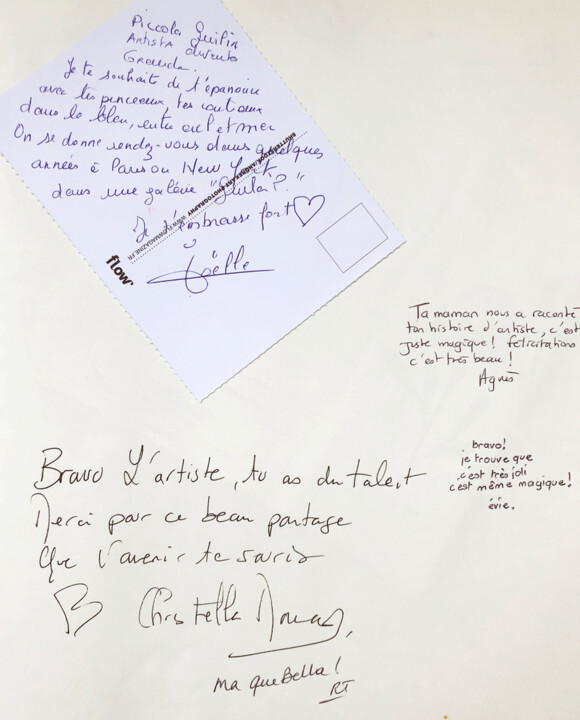 Piccola
Artista
Je te souhait de t'épanouir
avec tes pinceaux, tes couteaux
dans le bleu, entre ciel et mer
On se donne rendez-vous dans quelques
années à Paris ou New York
dans une galerie "Giulia P."
Je t'embrasse fort ♡
Joëlle
flow
WWW.FLOWMAGAZINE.FR
Ta maman nous a raconté
ton histoire d'artiste, c'est
juste magique! félicitations
c'est très beau!
Agnès
bravo!
je trouve que
c'est très joli
c'est même magique!
évie.
Bravo L'artiste, tu as du talent
Merci pour ce beau partage
Que l'avenir te sourit
♡ Christelle
ma que Bella!
RT